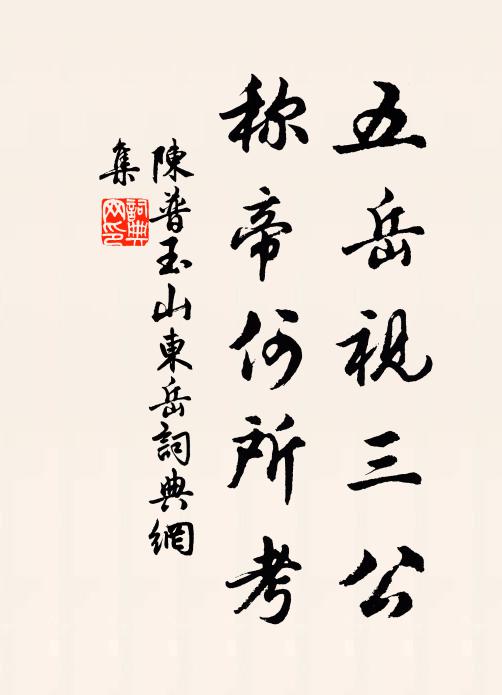 五岳视三公
称帝何所考
陳普玉山東岳詞典網
集
詞典
网印